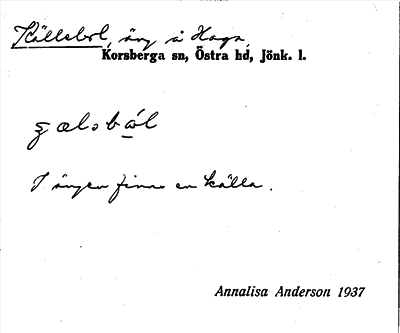 Källebol, äng å Haga,
Korsberga sn, Östra hd, Jönk. l.
I ängen finns en källa.
Annalisa Anderson 1937